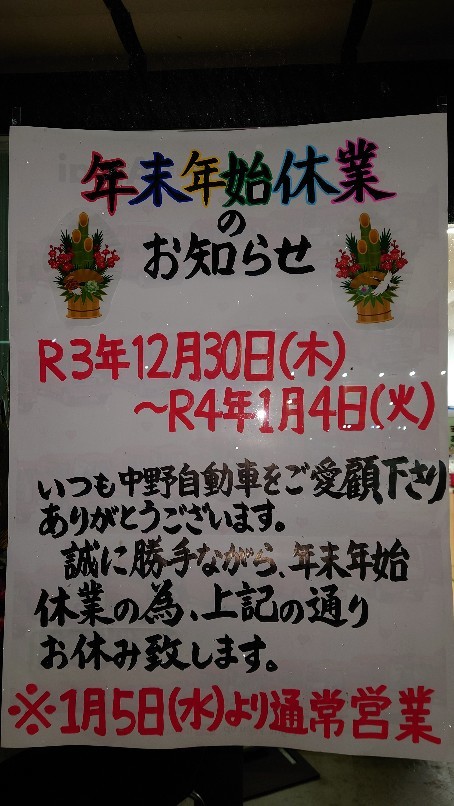 年末年始休業
の
お知らせ
R3年12月30日(木)
～R4年1月4日(火)
いつも中野自動車をご愛顧下さり
ありがとうございます。
誠に勝手ながら、年末年始
休業の為、上記の通り
お休み致します。
※1月5日(水)より通常営業